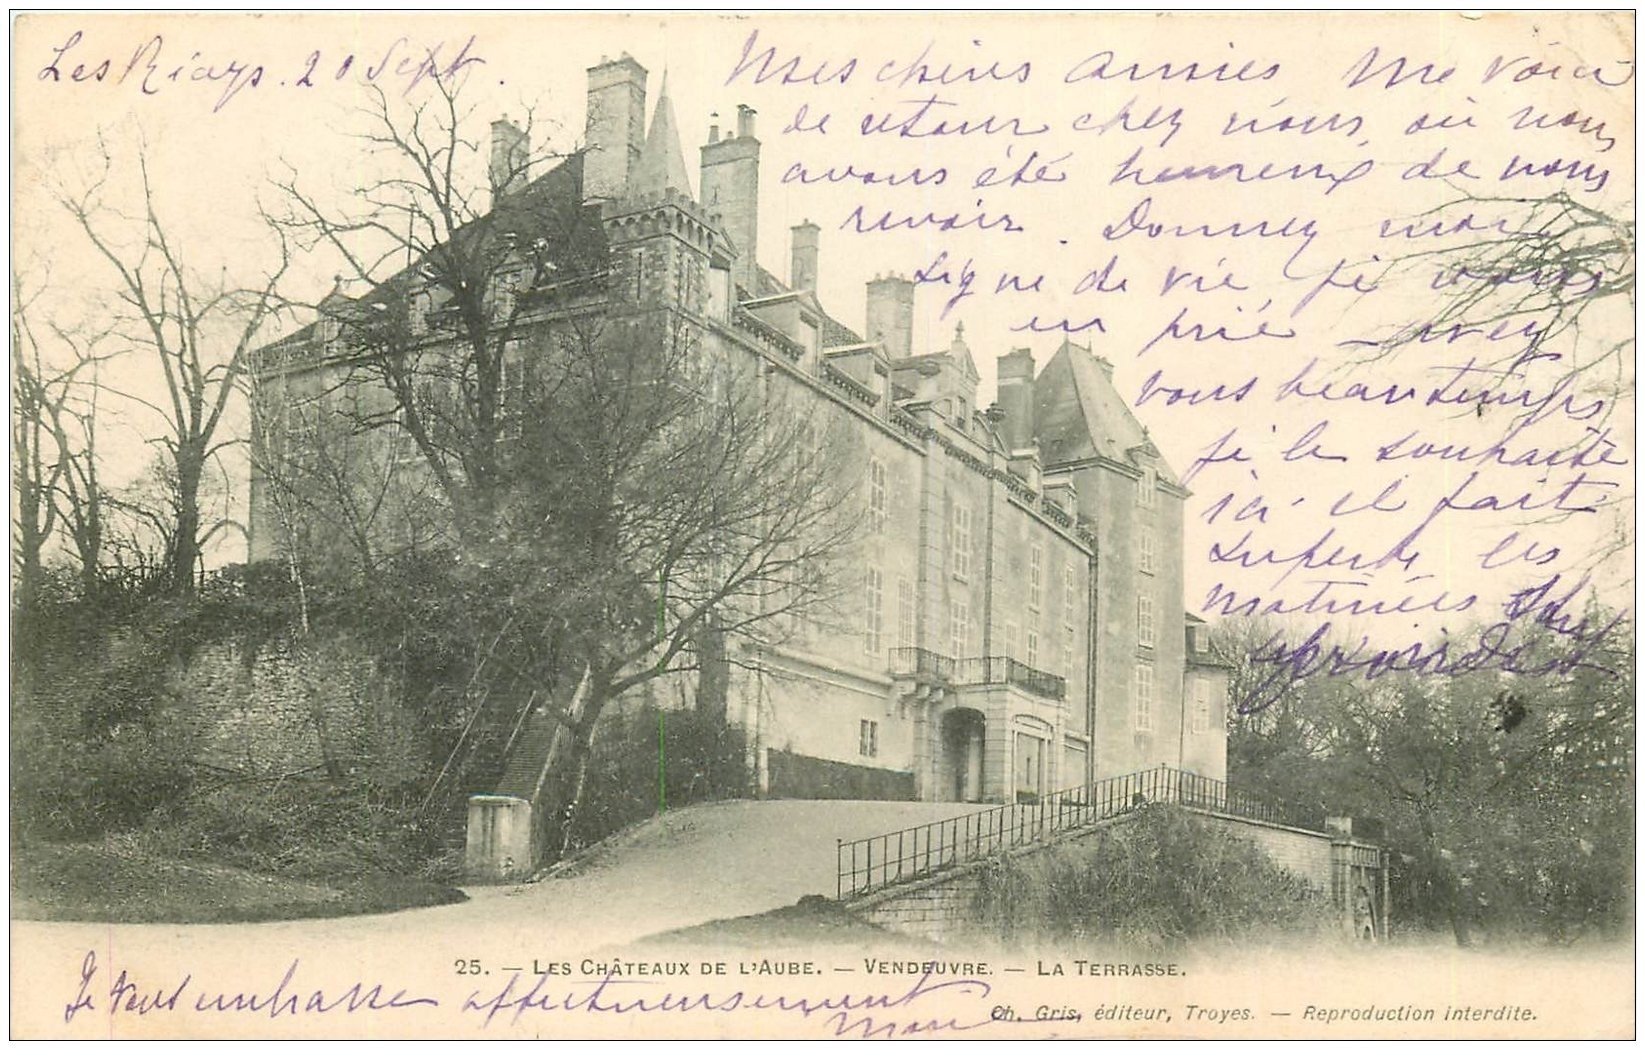 Les Riays. 20 Sept.
Mes chères Amies Me voici
de retour chez nous, où nous
avons été heureux de nous
revoir. Donnez moi
signe de vie, je vous
en prie — avez
vous beau temps
je le souhaite
ici il fait
superbe les
matinées
25. — LES CHÂTEAUX DE L'AUBE. — VENDEUVRE. — LA TERRASSE.
Je vous embrasse affectueusement
Marie
Ch. Gris, éditeur, Troyes. — Reproduction interdite.